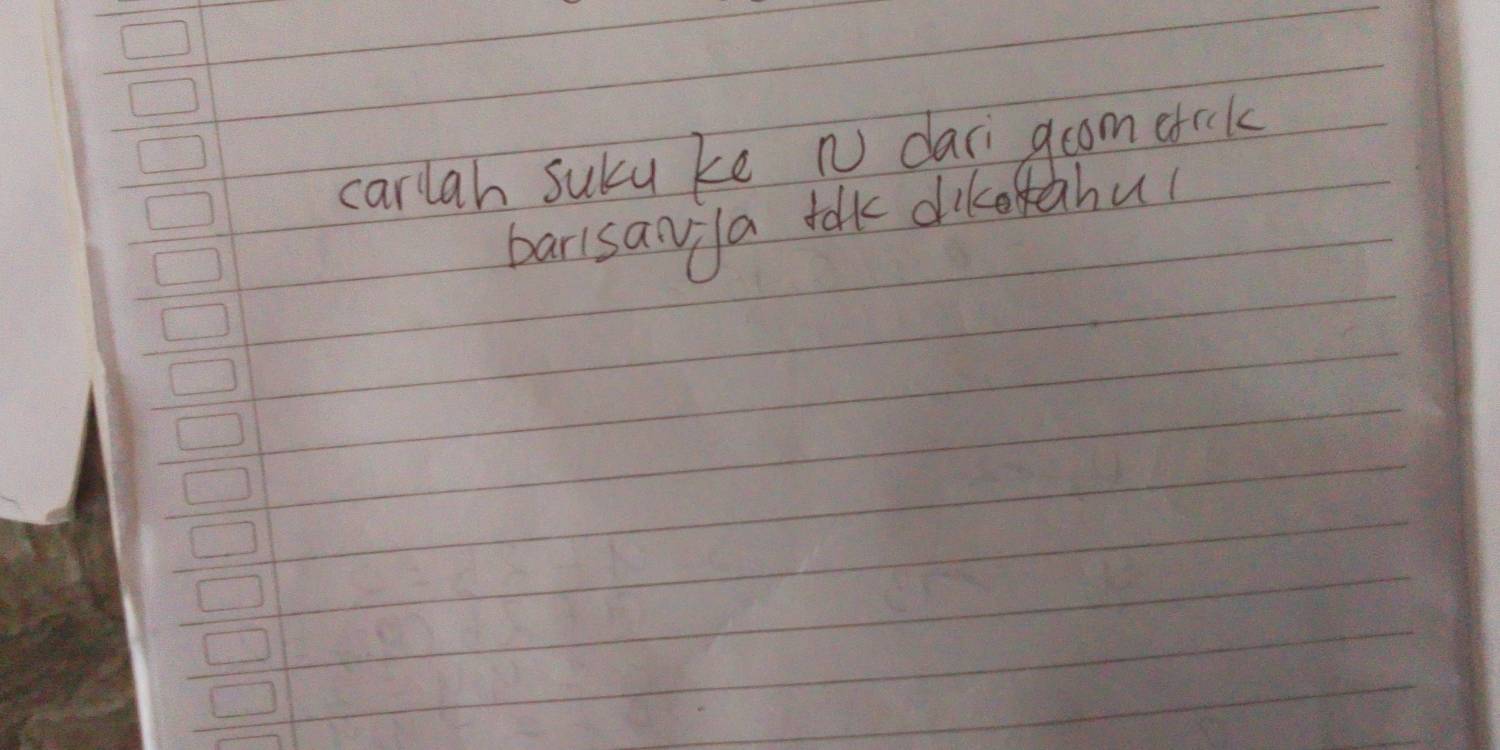 carilah suku ke N dari geometrik
barisannja tdk diketahui